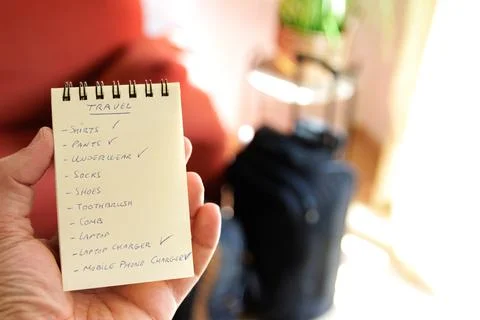 TRAVEL
- SHIRTS ✓
- PANTS ✓
- UNDERWEAR ✓
- SOCKS
- SHOES
- TOOTHBRUSH
- COMB
- LAPTOP
- LAPTOP CHARGER ✓
- MOBILE PHONE CHARGER ✓